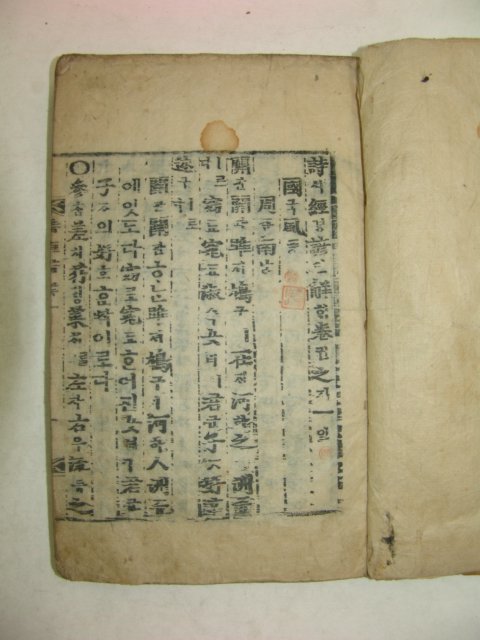 詩시經경諺언解ᄒᆡ卷권之지一일
國국風풍
周쥬南남
關관關관雎져鳩구ㅣ在ᄌᆡ河하之지洲쥬
ㅣ로다窈요窕됴淑슉女녀ㅣ君군子ᄌᆞ好호
逑구ㅣ로다
關관關관ᄒᆞᄂᆞᆫ雎져鳩구ㅣ河하人洲쥬
에잇도다窈요窕됴ᄒᆞᆫ어딘女녀ㅣ君군
子ᄌᆞ의好호ᄒᆞᆫᄧᅡᆨ이로다
○參참差치荇ᄒᆡᆼ菜ᄎᆡ를左좌右우流류之지